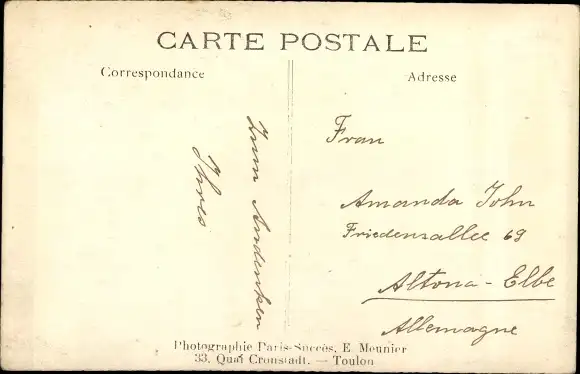 CARTE POSTALE
Correspondance
Adresse
Zum Andenken
Ihres
Frau
Amanda John
Friedensallee 69
Altona - Elbe
Allemagne
Photographie Paris-Succès, E. Meunier
33, Quai Cronstadt. — Toulon